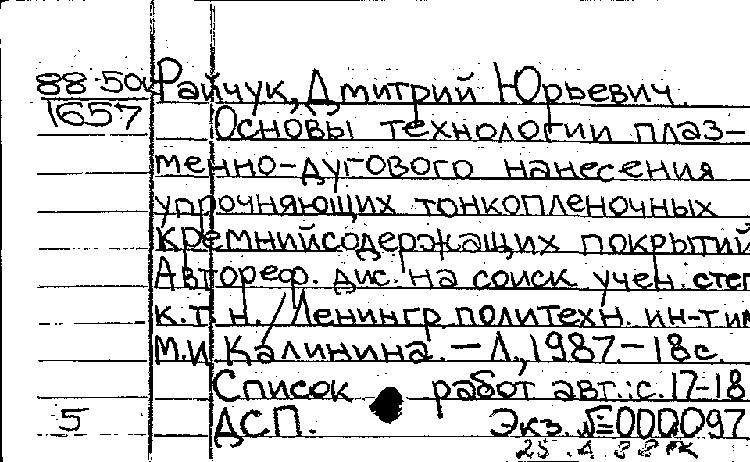 88-50а Райчук, Дмитрий Юрьевич.
1657 Основы технологии плаз-
менно-дугового нанесения
упрочняющих тонкопленочных
кремнийсодержащих покрытий
Автореф. дис. на соиск учен. степ
к.т.н. / Ленингр политехн. ин-т им
М.И Калинина. - Л., 1987. - 18 с.
Список работ авт.: с. 17-18
5 ДСП. Экз. №000097
25.4.88